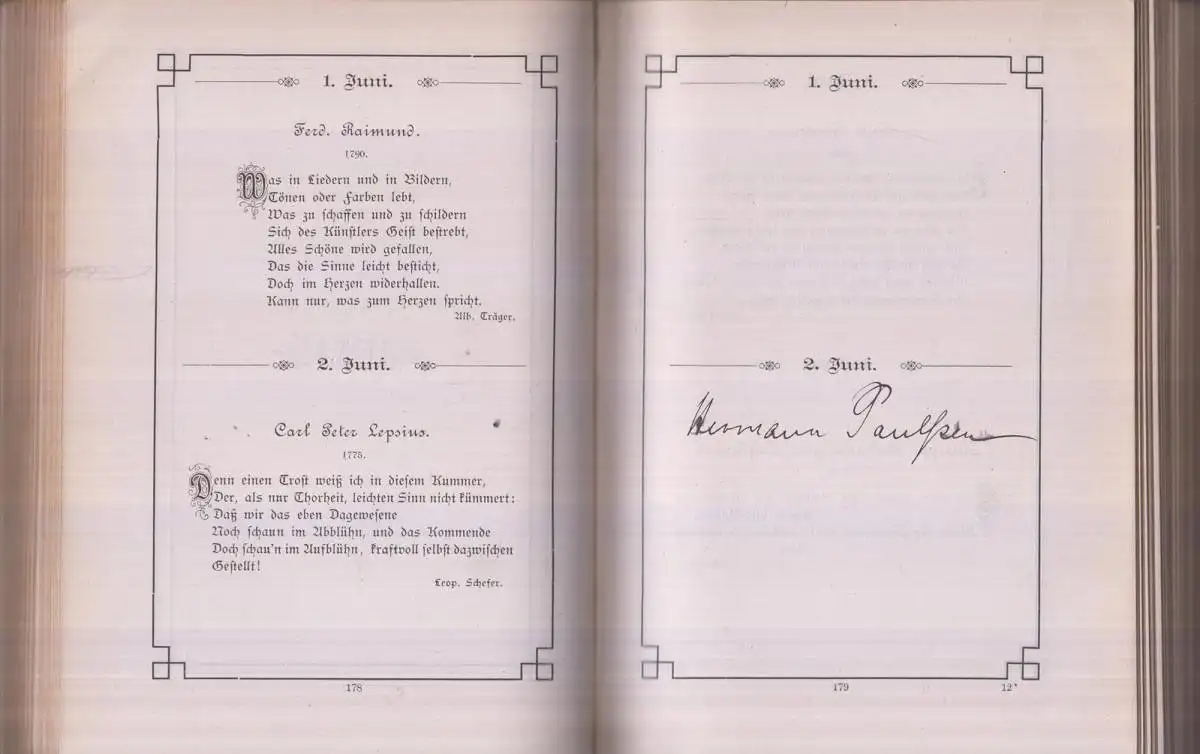 1. Juni.
Ferd. Raimund.
1790.
Was in Liedern und in Bildern,
Tönen oder Farben lebt,
Was zu schaffen und zu schildern
Sich des Künstlers Geist bestrebt,
Alles Schöne wird gefallen,
Das die Sinne leicht besticht,
Doch im Herzen widerhallen.
Kann nur, was zum Herzen spricht.
Alb. Träger.
2. Juni.
Carl Peter Lepsius.
1775.
Denn einen Trost weiß ich in diesem Kummer,
Der, als nur Thorheit, leichten Sinn nicht kümmert:
Daß wir das eben Dagewesene
Noch schaun im Abblühn, und das Kommende
Doch schau'n im Aufblühn, kraftvoll selbst dazwischen
Gestellt!
Leop. Schefer.
178
1. Juni.
2. Juni.
Hermann Paulssen
179
12*